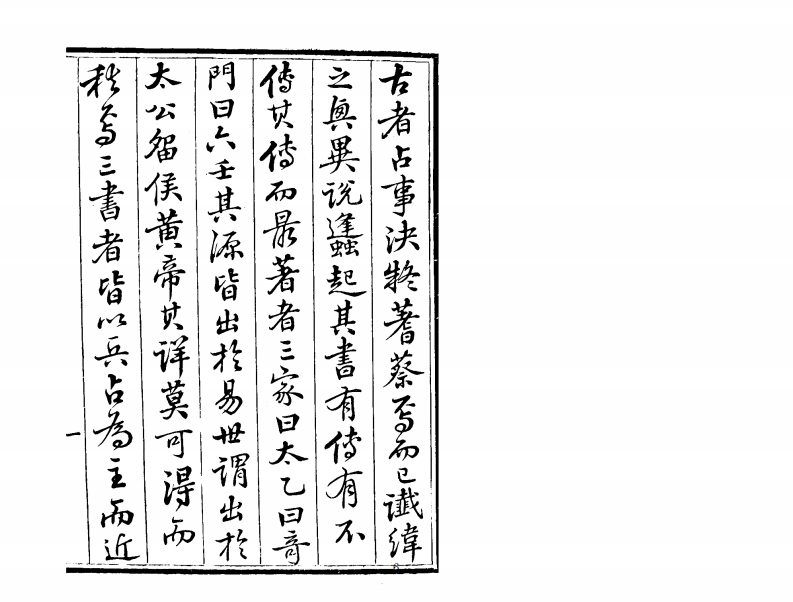 古者占事決於蓍蔡焉而已讖緯
之興異說蠭起其書有傳有不
傳其傳而最著者三家曰太乙曰奇
門曰六壬其源皆出於易世謂出於
太公留侯黃帝其詳莫可得而
稽焉三書者皆以兵占為主而近
一